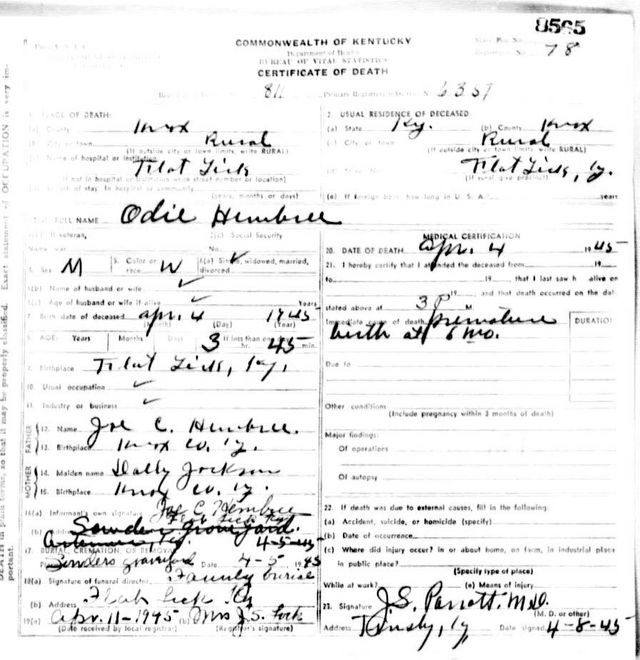 8565
COMMONWEALTH OF KENTUCKY
Department of Health
BUREAU OF VITAL STATISTICS
CERTIFICATE OF DEATH
78
811 Primary Registration 6357
1. PLACE OF DEATH:
(a) County Knox
(b) City or town Rural
(If outside city or town limits, write RURAL)
(c) Name of hospital or institution
Flat Lick
(If not in hospital or institution write street number or location)
of stay. In hospital or community
(years, months or days)
2. USUAL RESIDENCE OF DECEASED
(a) State Ky. (b) County Knox
(c) City or town Rural
(If outside city or town limits, write RURAL)
Flat Lick, Ky.
(If rural give precinct)
(e) If foreign born, how long in U. S. A. years
FULL NAME Odie Hembree
If veteran, 3(c) Social Security
Name war No.
4. Sex M 5. Color or race W 6(a) Single, widowed, married, divorced
(b) Name of husband or wife
(c) Age of husband or wife if alive Years
7. Birth date of deceased Apr. 4 1945
(Month) (Day) (Year)
8. AGE: Years Months Days If less than one day
3 hr. 45 min.
9. Birthplace Flat Lick, Ky.
10. Usual occupation
11. Industry or business
FATHER
12. Name Joe C. Hembree.
13. Birthplace Knox Co. Ky.
MOTHER
14. Maiden name Dolly Jackson
15. Birthplace Knox Co. Ky.
16(a) Informant's own signature Joe C Hembree
(b) Address Flat Lick Ky
17. BURIAL, CREMATION, OR REMOVAL 4-5-45
Senders graveyard 4-5 1945
18(a) Signature of funeral director Family burial
(b) Address Flat Lick Ky
19(a) Apr. 11-1945 (b) Mrs J.S. Lock
(Date received by local registrar) (Registrar's signature)
MEDICAL CERTIFICATION
20. DATE OF DEATH Apr. 4 1945
21. I hereby certify that I attended the deceased from 19
to 19 that I last saw h alive on
19 and that death occurred on the date
stated above at 3 P
Immediate cause of death premature
birth at 6 mo.
DURATION
Due to
Other conditions
(Include pregnancy within 3 months of death)
Major findings:
Of operations
Of autopsy
22. If death was due to external causes, fill in the following:
(a) Accident, suicide, or homicide (specify)
(b) Date of occurrence
(c) Where did injury occur? in or about home, on farm, in industrial place
in public place?
(Specify type of place)
While at work? (e) Means of injury
23. Signature J.S. Parrott. M.D.
(M. D. or other)
Address Ky Date signed 4-8-45
DEATH in plain terms, so that it may be properly classified. Exact statement of OCCUPATION is very im-
portant.